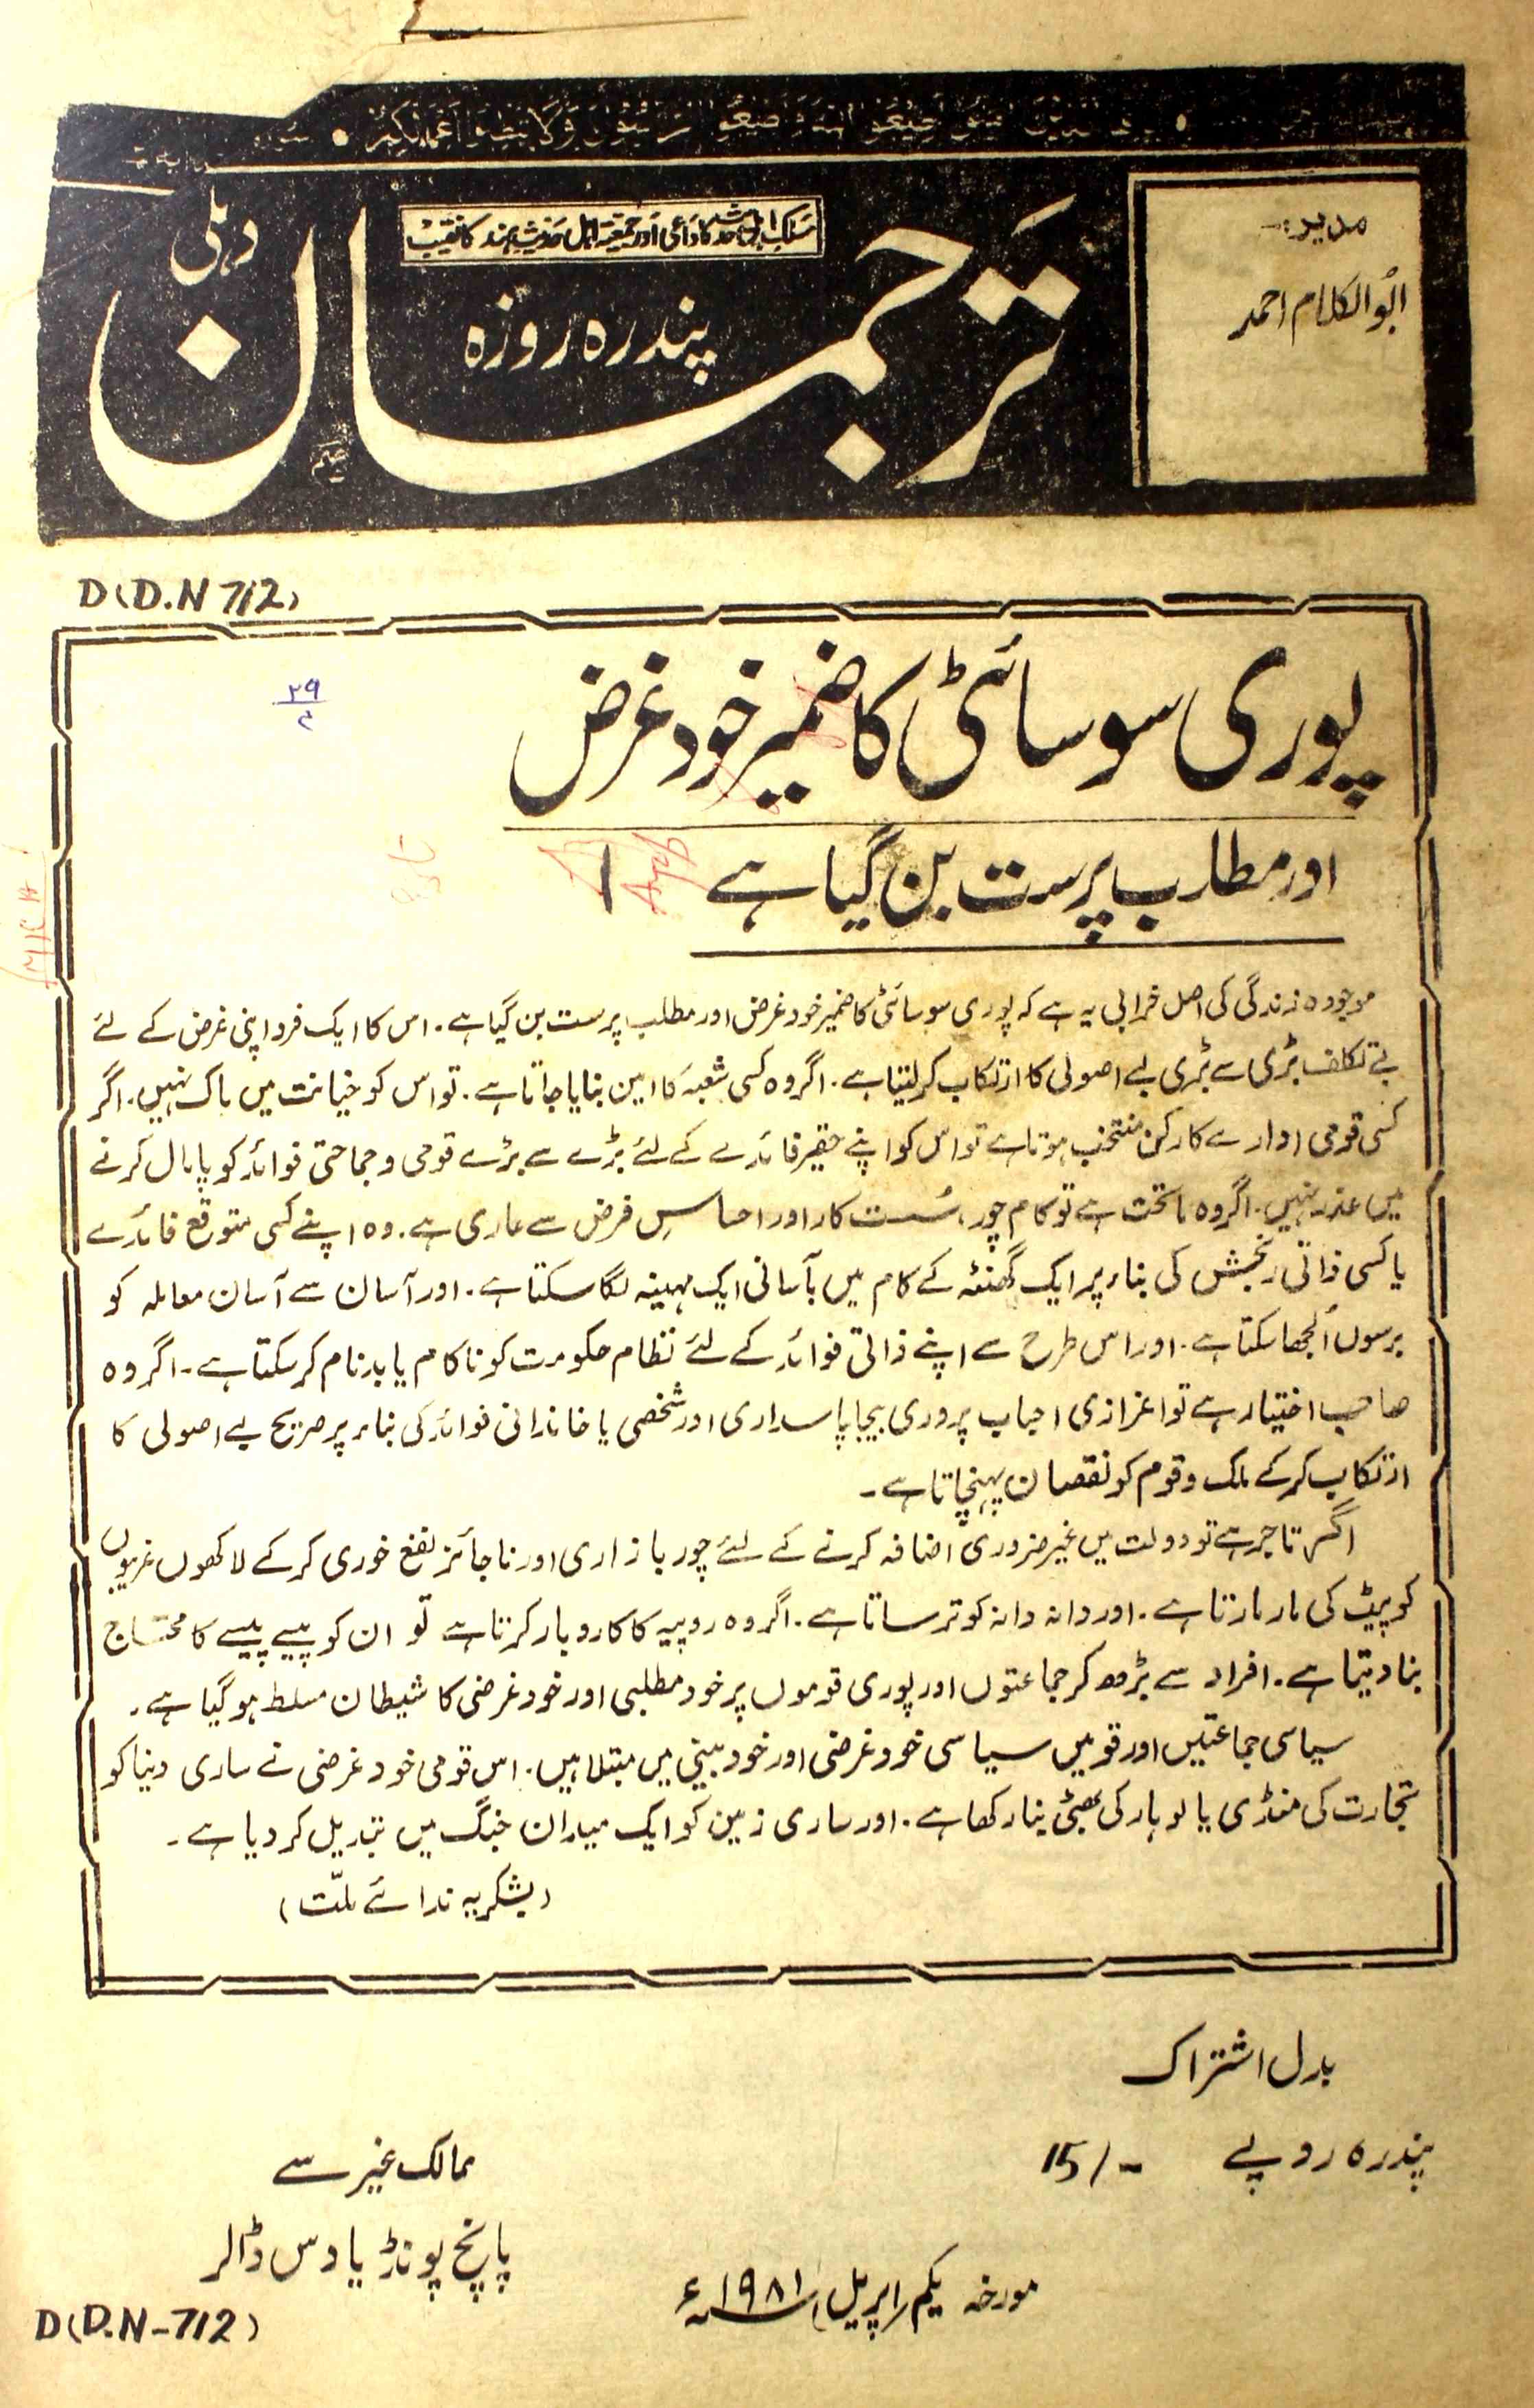 مدیر:-
ابُوالکلام احمد
مسلک اہل حدیث کا داعی اور جمعیۃ اہل حدیث ہند کا نقیب
پندرہ روزہ
ترجمان
دہلی
D(D.N 712)
۲۹
پوری سوسائٹی کا ضمیر خود غرض
اور مطلب پرست بن گیا ہے
موجودہ زندگی کی اصل خرابی یہ ہے کہ پوری سوسائٹی کا ضمیر خود غرض اور مطلب پرست بن گیا ہے۔ اس کا ایک فرد اپنی غرض کے لئے
بے تکلف بڑی سے بڑی بے اصولی کا ارتکاب کر لیتا ہے۔ اگر وہ کسی شعبہ کا امین بنایا جاتا ہے۔ تو اس کو خیانت میں باک نہیں۔ اگر
کسی قومی ادارے کا رکن منتخب ہوتا ہے تو اس کو اپنے حقیر فائدے کے لئے بڑے سے بڑے قومی و جماعتی فوائد کو پامال کرنے
میں عذر نہیں۔ اگر وہ ماتحت ہے تو کام چور، سُست کار اور احساسِ فرض سے عاری ہے۔ وہ اپنے کسی متوقع فائدے
یا کسی ذاتی رنجش کی بناء پر ایک گھنٹہ کے کام میں بآسانی ایک مہینہ لگا سکتا ہے۔ اور آسان سے آسان معاملہ کو
برسوں اُلجھا سکتا ہے۔ اور اس طرح سے اپنے ذاتی فوائد کے لئے نظام حکومت کو ناکام یا بدنام کر سکتا ہے۔ اگر وہ
صاحب اختیار ہے تو اعزازی احباب پروری بیجا پاسداری اور شخصی یا خاندانی فوائد کی بناء پر صریح بے اصولی کا
ارتکاب کر کے ملک و قوم کو نقصان پہنچاتا ہے۔
اگر تاجر ہے تو دولت میں غیر ضروری اضافہ کرنے کے لئے چور بازاری اور ناجائز نفع خوری کر کے لاکھوں غریبوں
کو پیٹ کی مار مارتا ہے۔ اور دانہ دانہ کو ترساتا ہے۔ اگر وہ روپیہ کا کاروبار کرتا ہے تو ان کو پیسے پیسے کا محتاج
بنا دیتا ہے۔ افراد سے بڑھ کر جماعتوں اور پوری قوموں پر خود مطلبی اور خود غرضی کا شیطان مسلط ہو گیا ہے۔
سیاسی جماعتیں اور قومیں سیاسی خود غرضی اور خود بینی میں مبتلا ہیں۔ اس قومی خود غرضی نے ساری دنیا کو
تجارت کی منڈی یا لوہار کی بھٹی بنا رکھا ہے۔ اور ساری زمین کو ایک میدان جنگ میں تبدیل کر دیا ہے۔
(بشکریہ ندائے ملّت)
بدل اشتراک
پندرہ روپے 15/-
ممالک غیر سے
پانچ پونڈ یا دس ڈالر
مورخہ یکم/اپریل ۱۹۸۱ء
D(D.N-712)